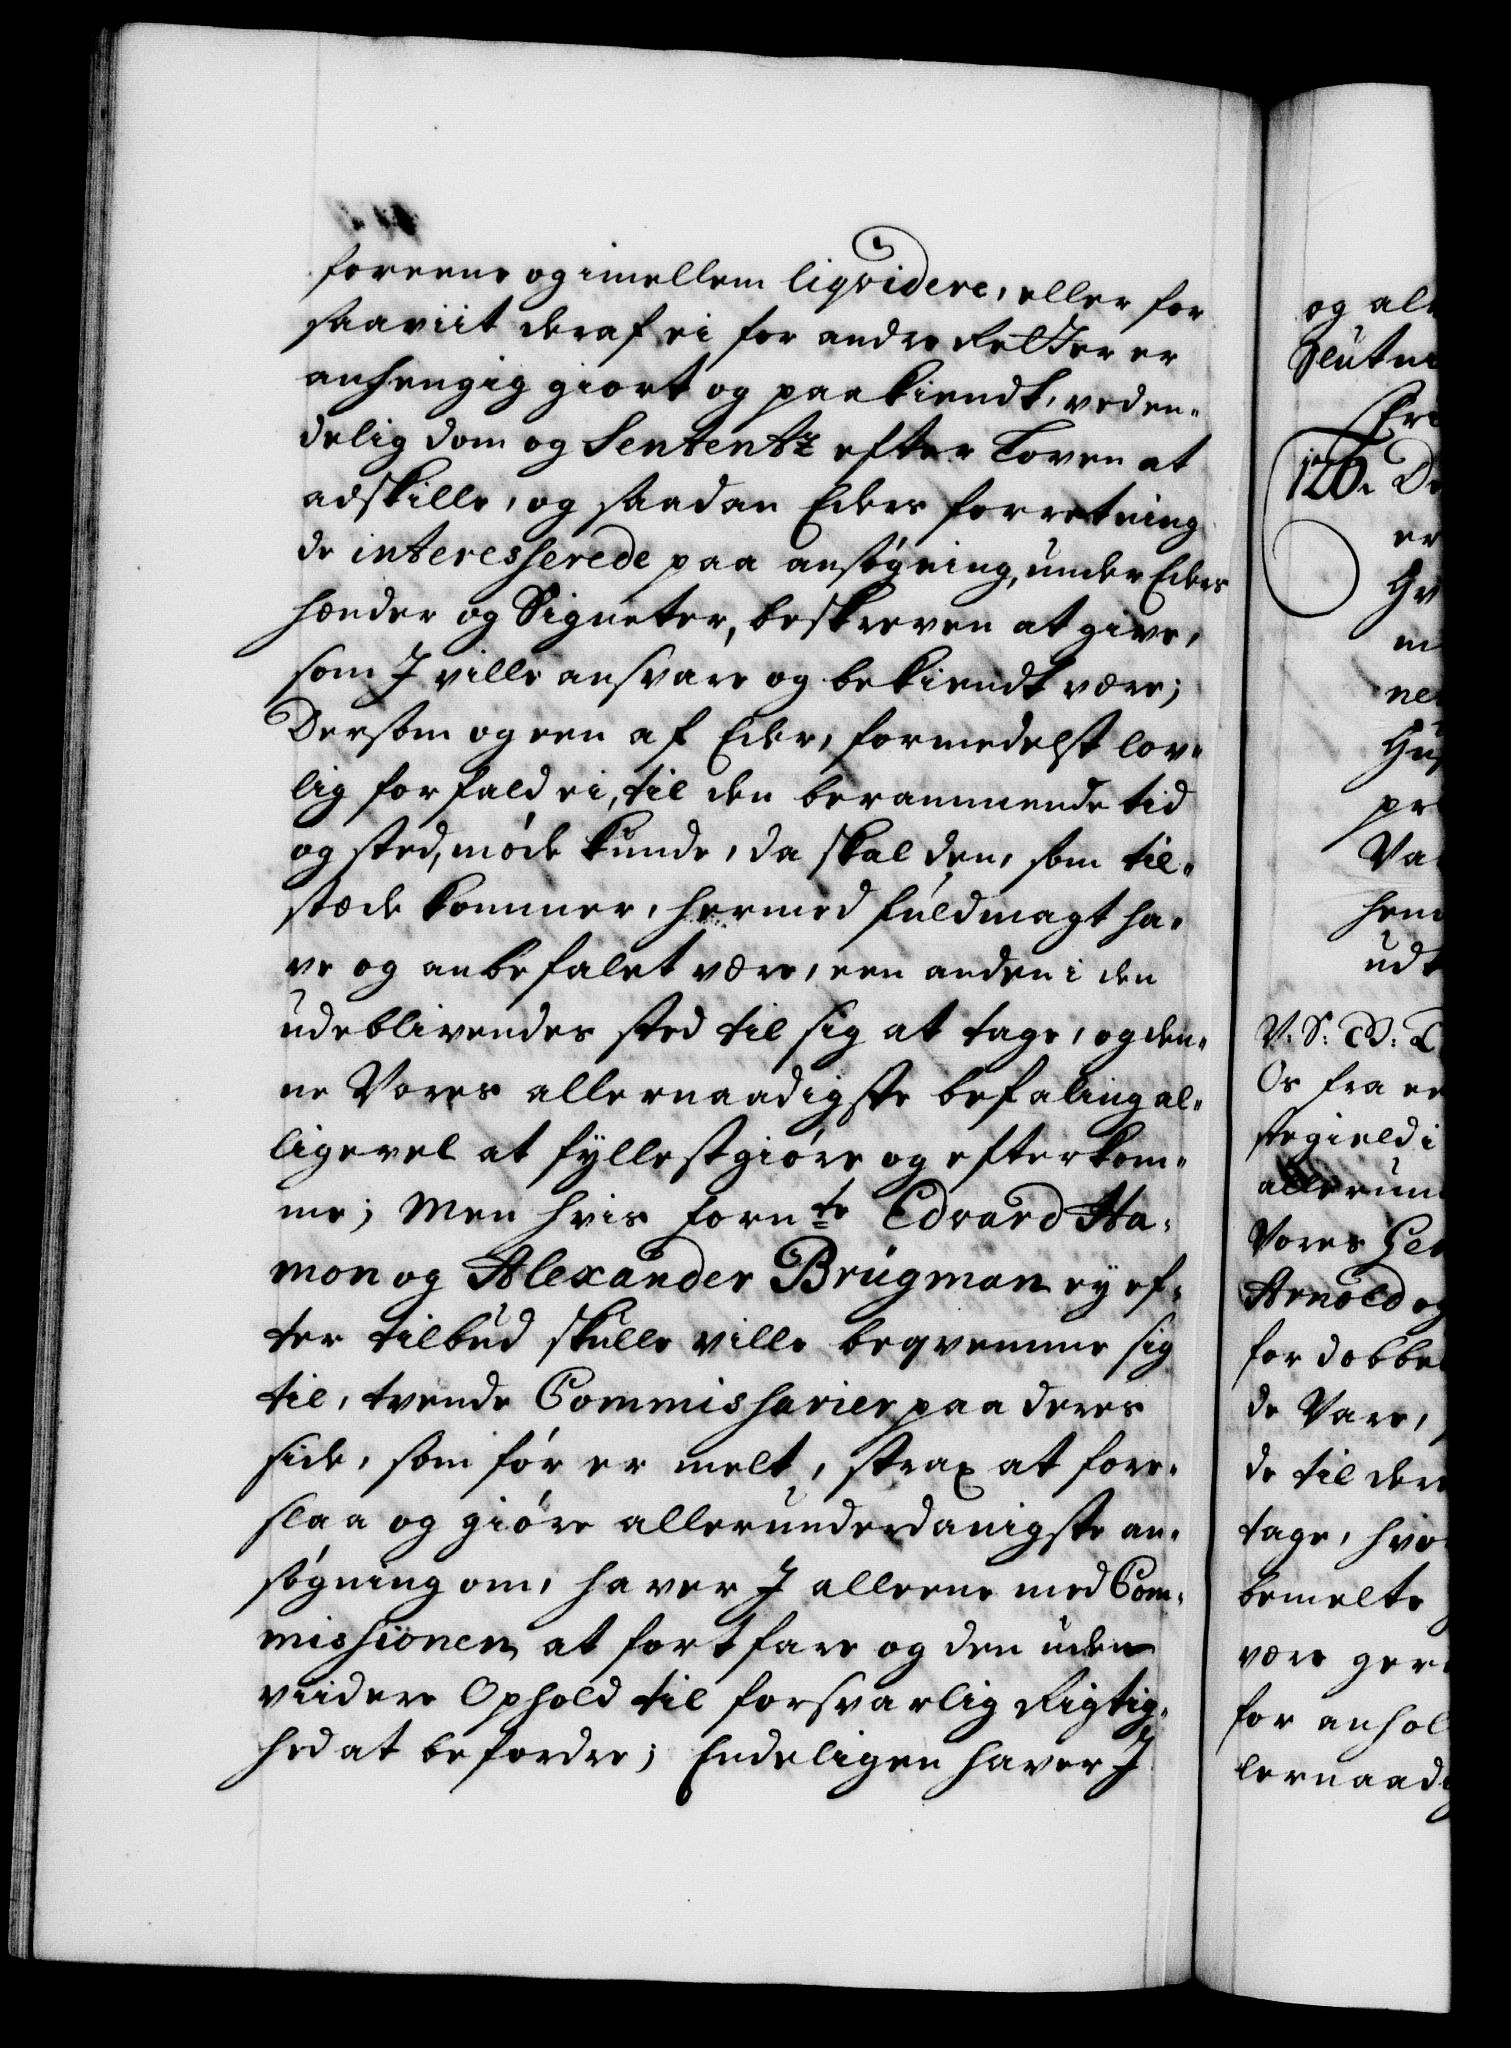 foreene og imellem liqvidere, eller for
saaviit deraf ei for andre Retter er
anhengig giort og paakiendt, ved en-
delig dom og Sententz efter Loven at
adskille, og saadan Eders forretning
de interesserede paa ansøgning, under Eders
hænder og Signeter, beskreven at give,
som J ville ansvare og bekiendt være;
Dersom og een af Eder, formedelst lov-
lig forfald ei, til den berammende tid
og sted, møde kunde, da skal den, som til-
stæde kommer, hermed fuldmagt ha-
ve og anbefalet være, een anden i den
udeblivendes sted til sig at tage, og den-
ne Vores allernaadigste befaling al-
ligevel at fyllestgiøre og efterkom-
me; Men hvis fornte Edvard Ha-
mon og Alexander Brugman ey ef-
ter tilbud skulle ville beqvemme sig
til, tvende Commissarier paa deres
side, som før er melt, strax at fore-
slaa og giøre allerunderdanigste an-
søgning om, haver J alleene med Com-
missionen at fortfare og den uden
viidere Ophold til forsvarlig Rigtig-
hed at befordre; Endeligen haver J
og al
Slutni
Fri
126. D
er
Hv
m
ne
Hus
pr
Va
hen
udt
V. S. G. T
Os fra en
stegield i
allerun
Vores
Arnold og
for dobbe
de Vare,
de til der
tage, hvo
bemelte
være ger
for anhol
lernaad